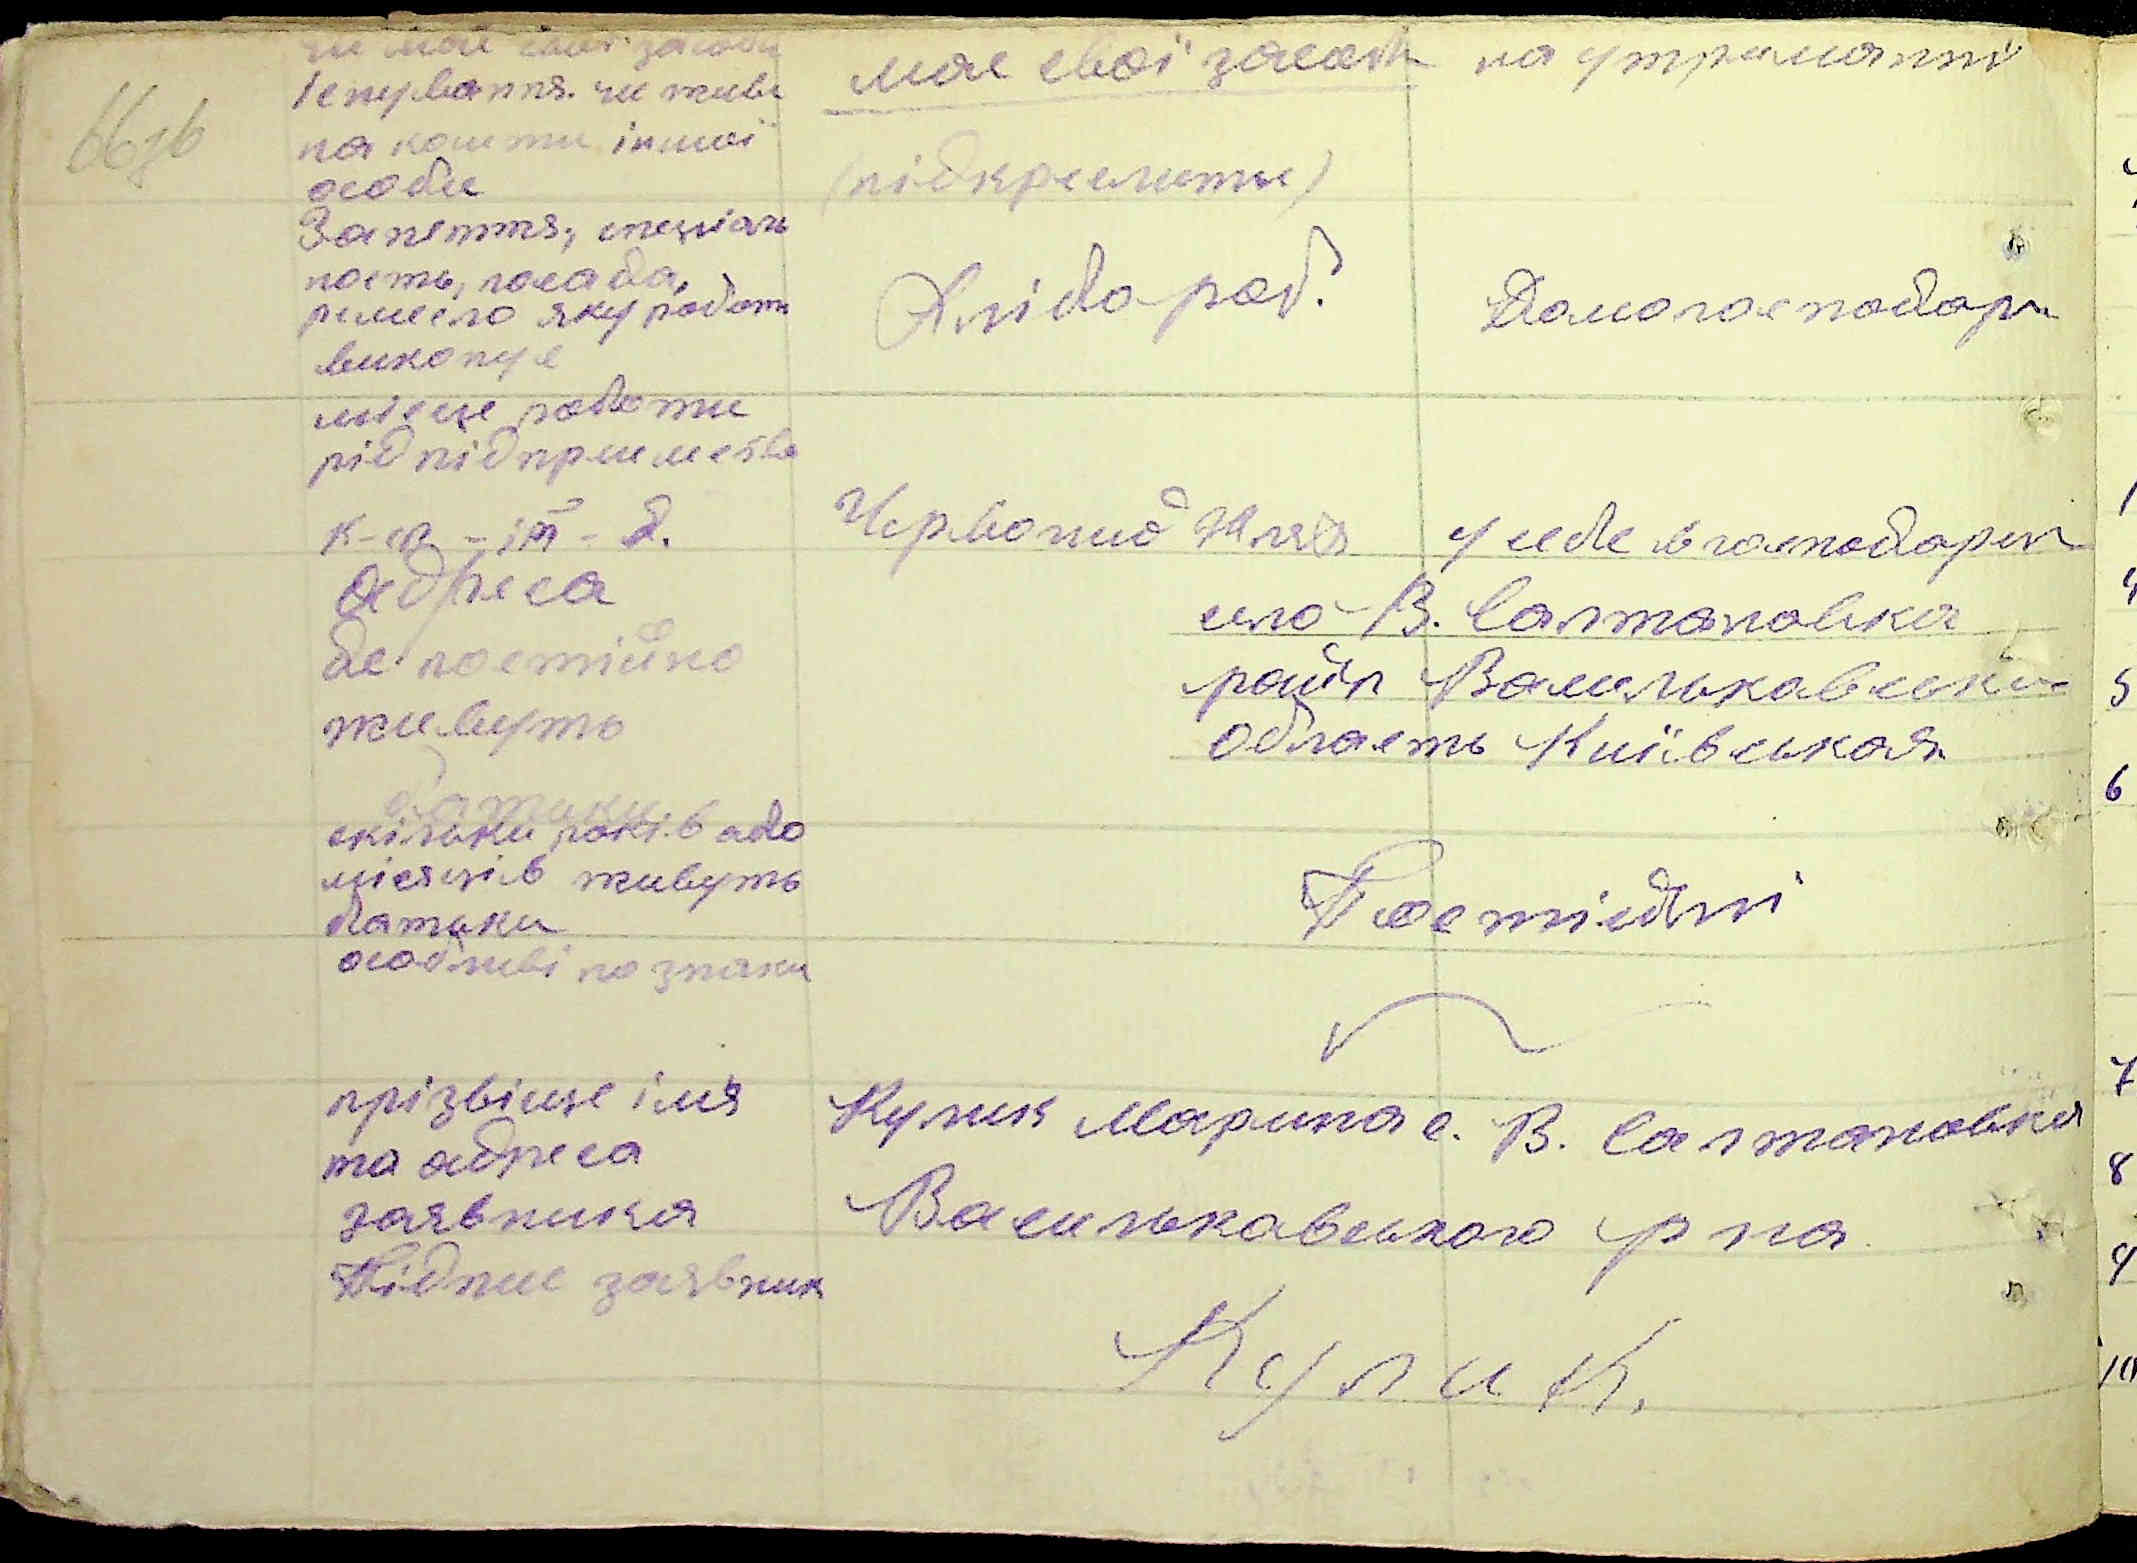 66зв
чи має свої засоби
існування. чи живе
на кошти іншої
особи
має свої засоби на утриманні
(підкреслити)
Заняття, спеціаль
ность, посада,
ремесло яку роботу
виконує
Хлібороб. Домогосподарк
місце роботи
рід підприємства
к-сп - іт - д.
Червоний Жлях у себе в господарстві
адреса
де постійно
живуть
батьки
село В. Салтановка
район Васильковський
область Київськая
скільки років або
місяців живуть
батьки
Постійні
особливі познаки
прізвіще імя
та адреса
заявника
Кулик Марина с. В. Салтановка
Васильковського р на
Підпис заявник
Кулик.
5
6
7
8
9
10